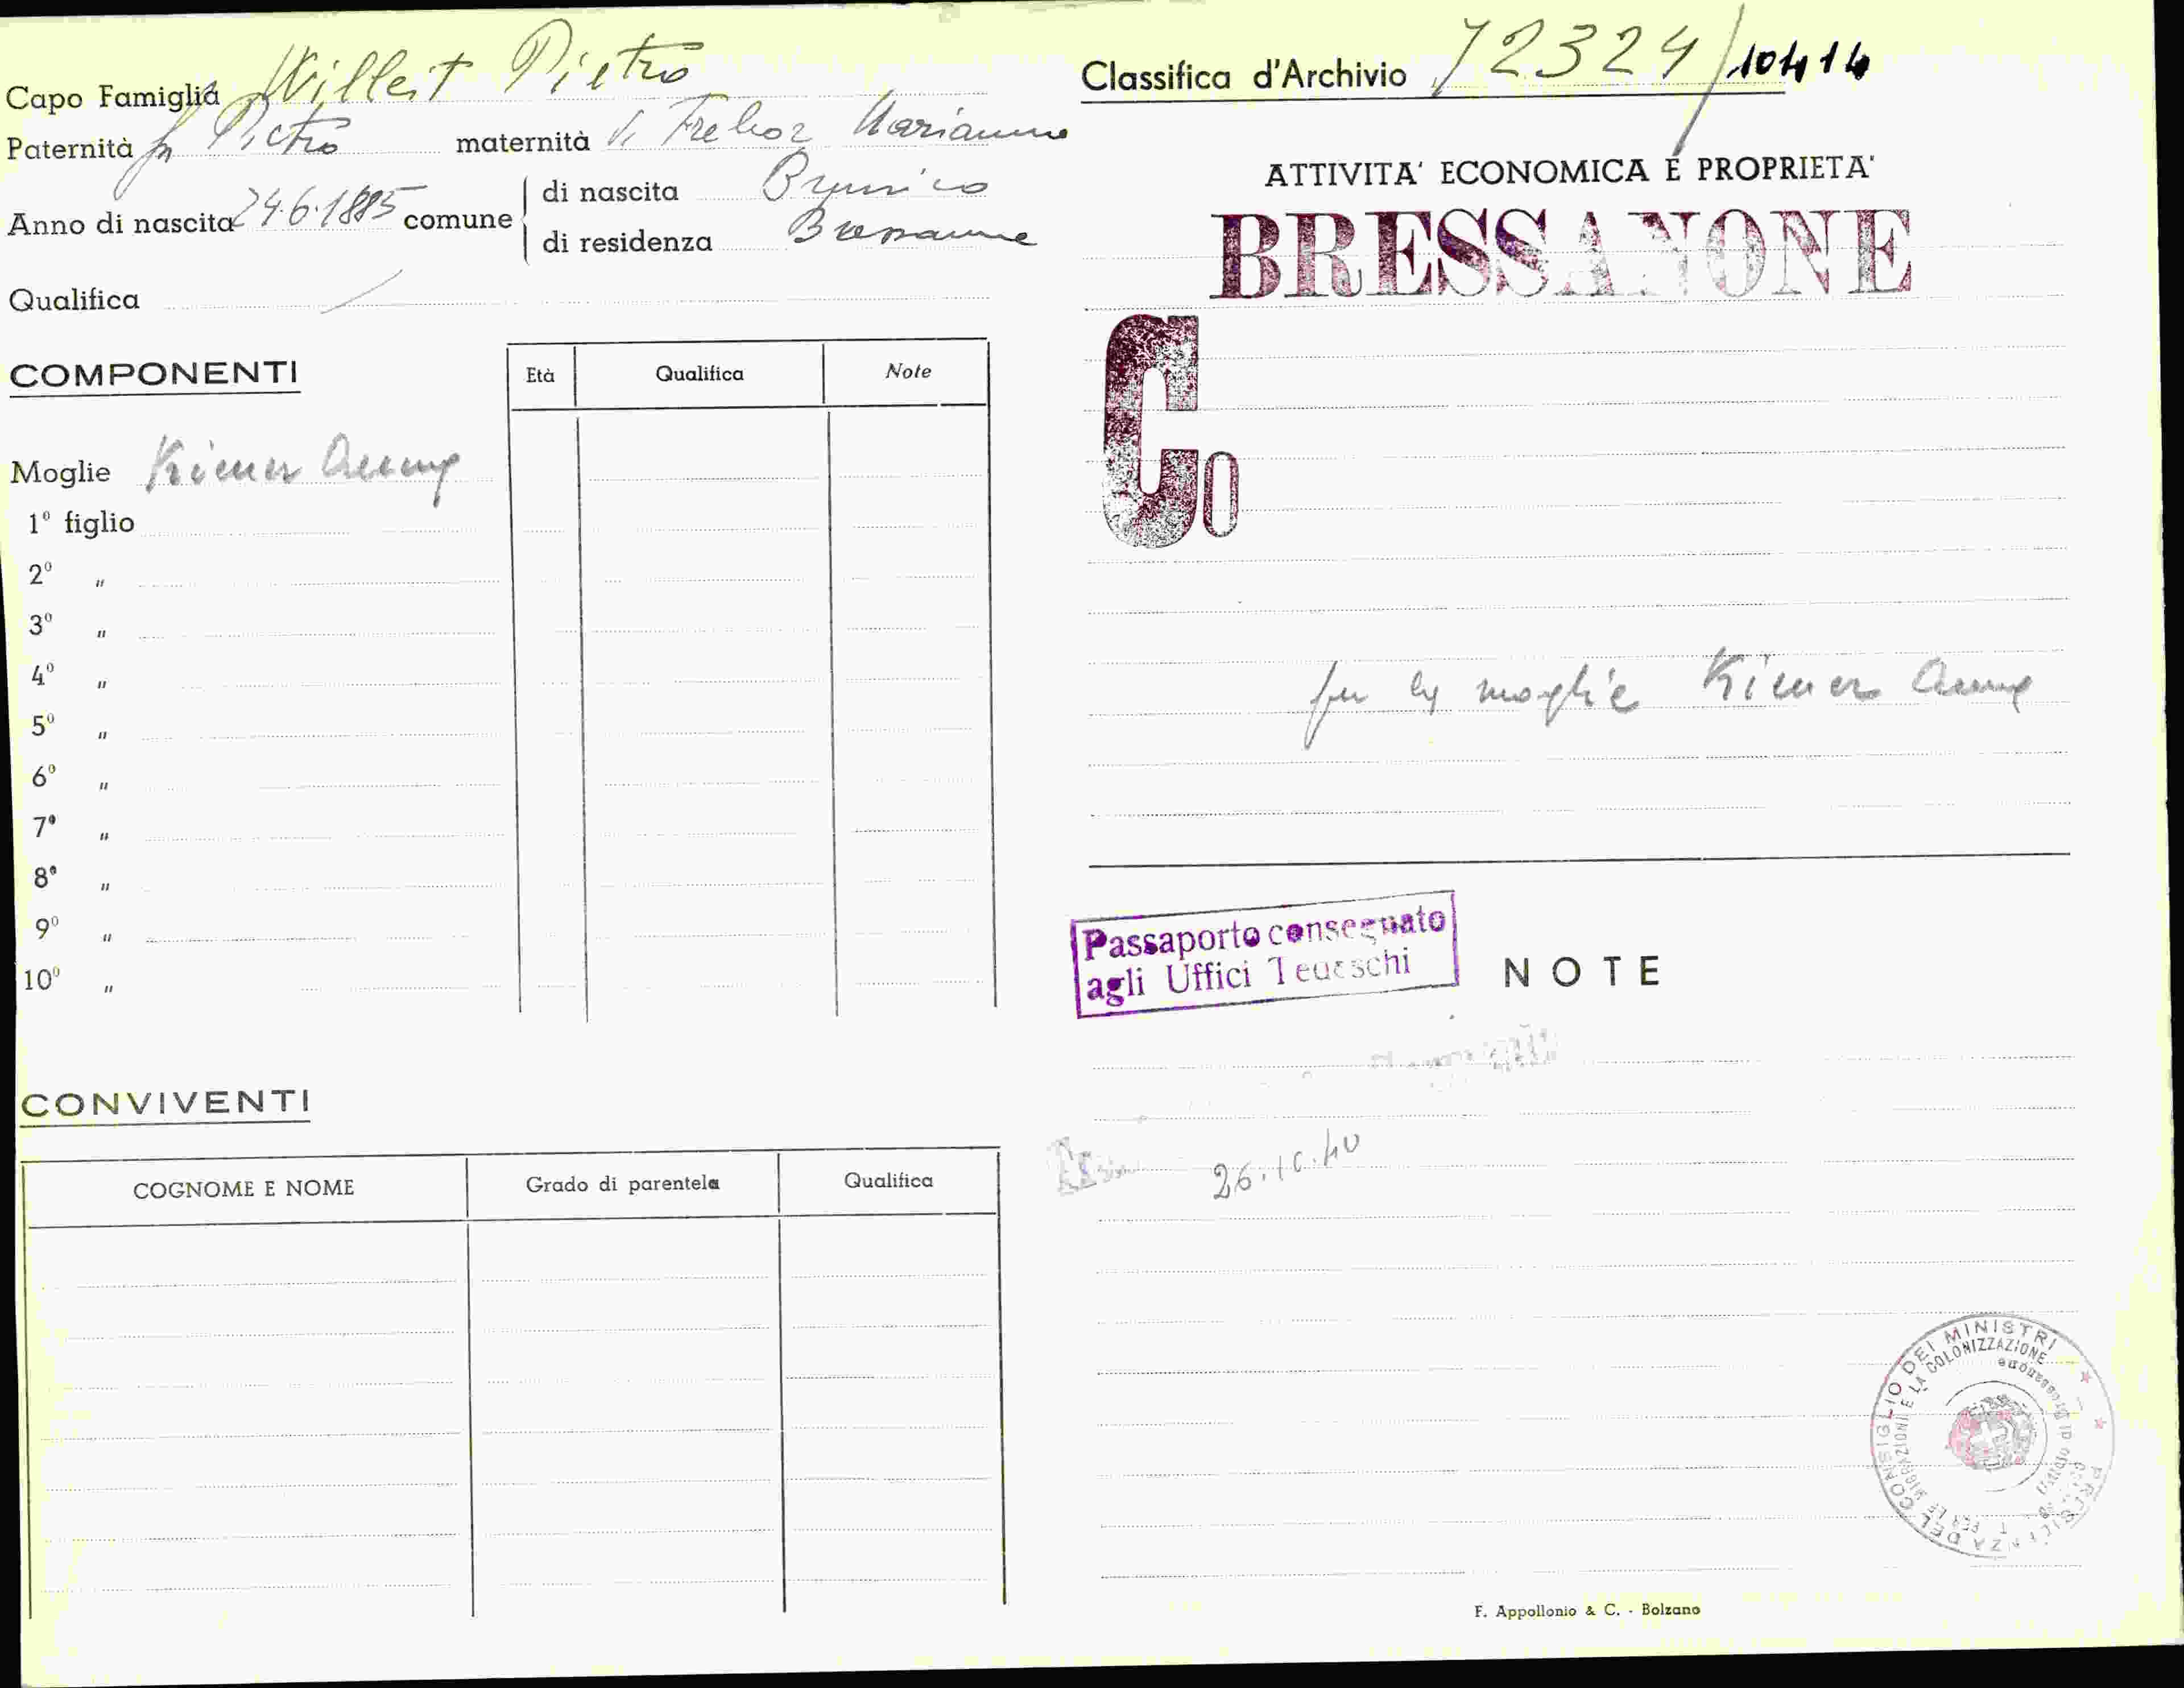 Capo Famiglia Willeit Pietro
Paternità fu Pietro maternità di Marianna
Anno di nascita 24.6.1885 comune
di nascita Brunico
di residenza Bressanone
Qualifica /
COMPONENTI
Età Qualifica Note
Moglie Kiener Anna
1º figlio
2º "
3º "
4º "
5º "
6º "
7º "
8º "
9º "
10º "
CONVIVENTI
COGNOME E NOME Grado di parentela Qualifica
Classifica d'Archivio 72324/10414
ATTIVITA' ECONOMICA E PROPRIETA'
BRESSANONE
Co
per la moglie Kiener Anna
Passaporto consegnato
agli Uffici Tedeschi
NOTE
26.10.40
PRESIDENZA DEL CONSIGLIO DEI MINISTRI
PER LE MIGRAZIONI E LA COLONIZZAZIONE
Ufficio di Bressanone
F. Appollonio & C. - Bolzano